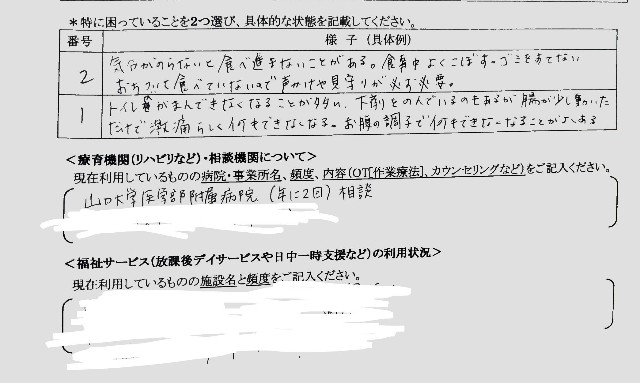 ＊特に困っていることを2つ選び、具体的な状態を記載してください。
番号 様 子（具体例）
2 気分がのらないと食べ進まないことがある。食事中よくこぼす。ゴミをすてない
おちついて食べていないので声かけや見守りが必ず必要。
1 トイレ がまんできなくなることが多い、下剤をのんでいるのもあるが腸が少し動いた
だけで激痛らしく何もできなくなる。お腹の調子で何もできなくなることがよくある
＜療育機関（リハビリなど）・相談機関について＞
現在利用しているものの病院・事業所名、頻度、内容（OT[作業療法]、カウンセリングなど）をご記入ください。
山口大学医学部附属病院（年に2回）相談
＜福祉サービス（放課後デイサービスや日中一時支援など）の利用状況＞
現在利用しているものの施設名と頻度をご記入ください。